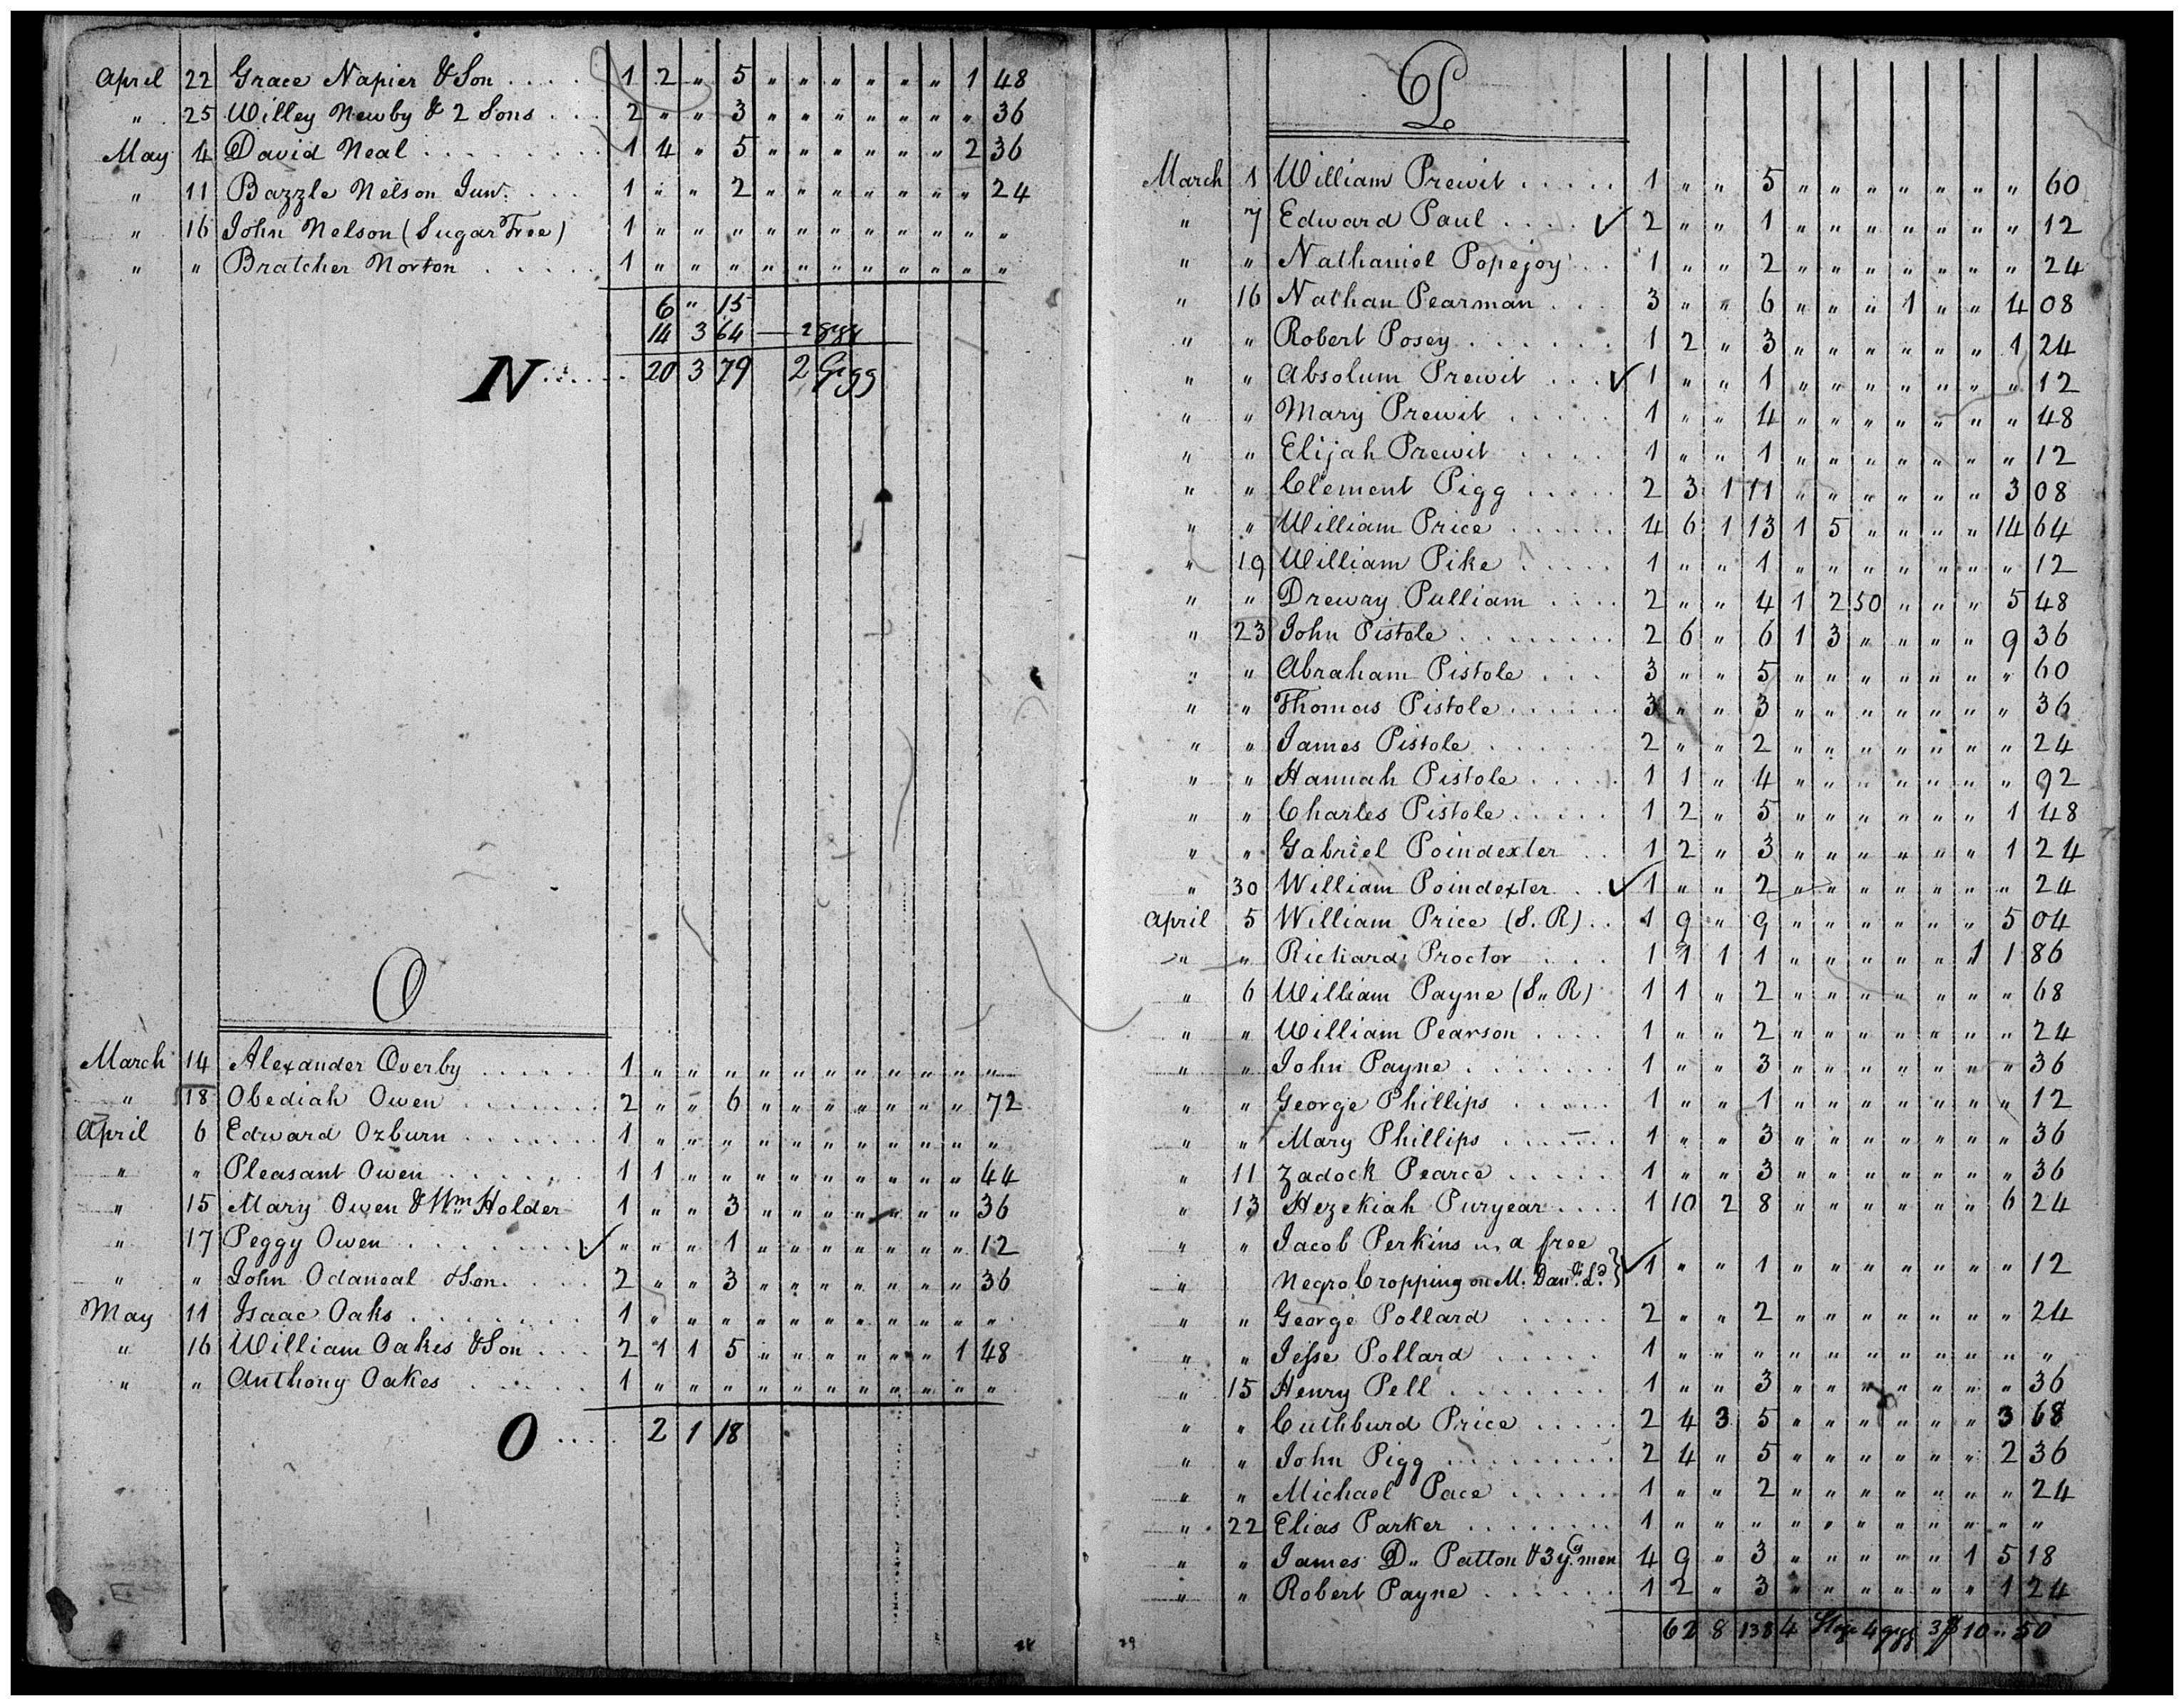 April 22 Grace Napier & Son . . . . 1 2 " 5 " " " " " " 1 48
" 25 Willey Newby & 2 Sons . . . 2 " " 3 " " " " " " " 36
May 4 David Neal . . . . . . . . 1 4 " 5 " " " " " " 2 36
" 11 Bazzle Nelson Junr. . . . 1 " " 2 " " " " " " " 24
" 16 John Nelson (Sugar Tree) 1 " " " " " " " " " " "
" " Bratcher Norton . . . . . 1 " " " " " " " " " " "
6 " 15
14 3 64 — 2 gigg
N . . . . . 20 3 79 2 Gigg
O
March 14 Alexander Overby . . . . . . 1 " " " " " " " " " " "
" 18 Obediah Owen . . . . . . . 2 " " 6 " " " " " " " 72
April 6 Edward Ozburn . . . . . . . 1 " " " " " " " " " " "
" " Pleasant Owen . . . . . . . 1 1 " " " " " " " " " 44
" 15 Mary Owen & Wm Holder 1 " " 3 " " " " " " " 36
" 17 Peggy Owen . . . . . . . ✓ " " " 1 " " " " " " " 12
" " John Odaneal & Son. . . . 2 " " 3 " " " " " " " 36
May 11 Isaac Oaks . . . . . . . 1 " " " " " " " " " " "
" 16 William Oakes & Son . . . 2 1 1 5 " " " " " " 1 48
" " Anthony Oakes . . . . . 1 " " " " " " " " " " "
O . . . . 2 1 18
P
March 1 William Prewit . . . . . 1 " " 5 " " " " " " " 60
" 7 Edward Paul . . . . ✓ 2 " " 1 " " " " " " " 12
" " Nathaniel Popejoy . . 1 " " 2 " " " " " " " 24
" 16 Nathan Pearman . . . 3 " " 6 " " " 1 " " 4 08
" " Robert Posey . . . . . . 1 2 " 3 " " " " " " 1 24
" " Absolum Prewit . . . ✓ 1 " " 1 " " " " " " " 12
" " Mary Prewit . . . . . 1 " " 4 " " " " " " " 48
" " Elijah Prewit . . . . 1 " " 1 " " " " " " " 12
" " Clement Pigg . . . . . 2 3 1 11 " " " " " " 3 08
" " William Price . . . . . . 4 6 1 13 1 5 " " " " 14 64
" 19 William Pike . . . . . 1 " " 1 " " " " " " " 12
" " Drewry Pulliam . . . . 2 " " 4 1 2 50 " " " 5 48
" 23 John Pistole . . . . . . . . 2 6 " 6 1 3 " " " " 9 36
" " Abraham Pistole . . . 3 " " 5 " " " " " " " 60
" " Thomas Pistole . . . . . . 3 " " 3 " " " " " " " 36
" " James Pistole . . . . . . 2 " " 2 " " " " " " " 24
" " Hannah Pistole . . . . . 1 1 " 4 " " " " " " " 92
" " Charles Pistole . . . . . 1 2 " 5 " " " " " " 1 48
" " Gabriel Poindexter . . 1 2 " 3 " " " " " " 1 24
" 30 William Poindexter . . ✓ 1 " " 2 " " " " " " " 24
April 5 William Price (S. R) . . 1 9 " 9 " " " " " " 5 04
" " Richard Proctor . . . 1 1 1 1 " " " " " 1 1 86
" 6 William Payne (S" R) 1 1 " 2 " " " " " " " 68
" " William Pearson . . . . 1 " " 2 " " " " " " " 24
" " John Payne . . . . . . . 1 " " 3 " " " " " " " 36
" " George Phillips . . . . . 1 " " 1 " " " " " " " 12
" " Mary Phillips . . . . . . 1 " " 3 " " " " " " " 36
" 11 Zadock Pearce . . . . . 1 " " 3 " " " " " " " 36
" 13 Hezekiah Puryear . . . . 1 10 2 8 " " " " " " 6 24
" " Jacob Perkins " a free
" Negro, Cropping on M. Danl. Ld. } ✓ 1 " " 1 " " " " " " " 12
" " George Pollard . . . . . 2 " " 2 " " " " " " " 24
" " Jesse Pollard . . . . . 1 " " " " " " " " " " "
" 15 Henry Pell . . . . . . . 1 " " 3 " " " " " " " 36
" " Cuthburd Price . . . . . 2 4 3 5 " " " " " " 3 68
" " John Pigg . . . . . . . . . 2 4 " 5 " " " " " " 2 36
" " Michael Pace . . . . . . 1 " " 2 " " " " " " " 24
" 22 Elias Parker . . . . . . . . 1 " " " " " " " " " " "
" " James D" Patton & 3 yg men 4 9 " 3 " " " " " 1 5 18
" " Robert Payne . . . . . . 1 2 " 3 " " " " " " 1 24
62 8 138 4 Stage 4 gigg 3 10 " 50
29